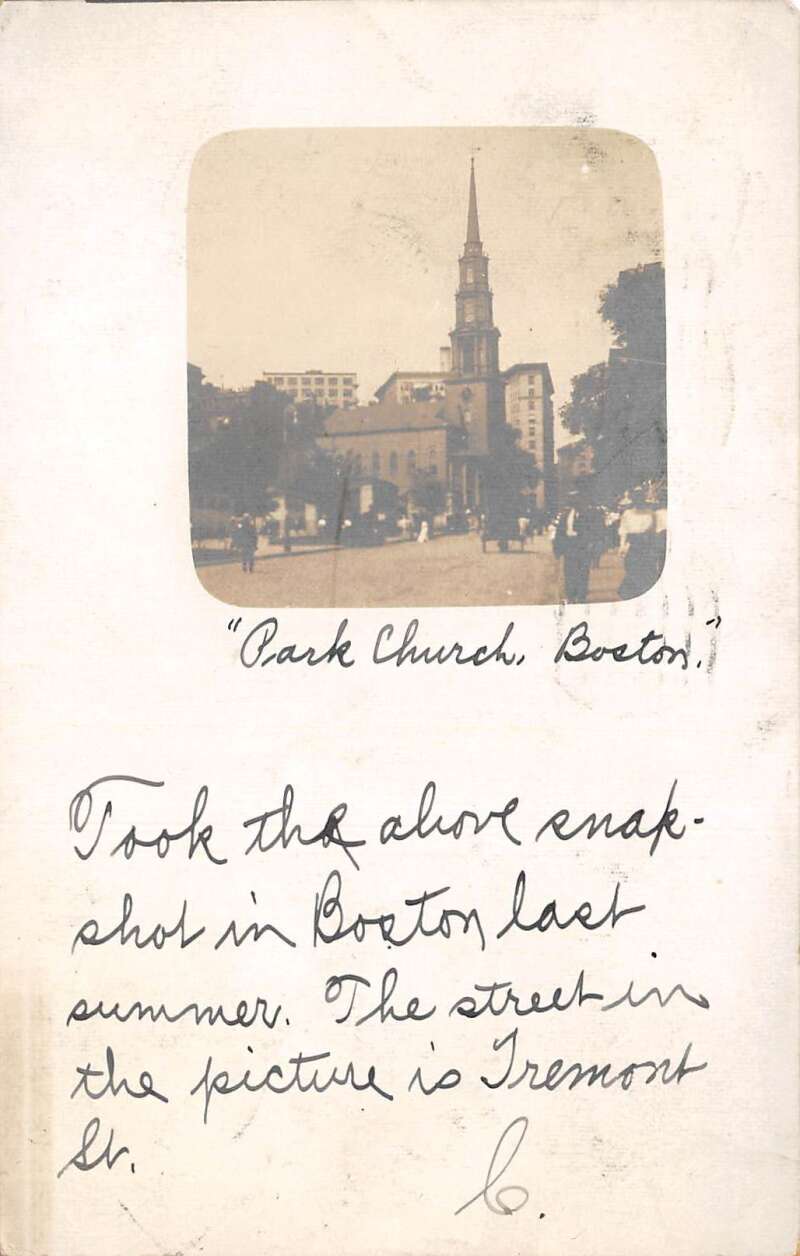 "Park Church, Boston."
Took the above snap-
shot in Boston last
summer. The street in
the picture is Tremont
St.
C.